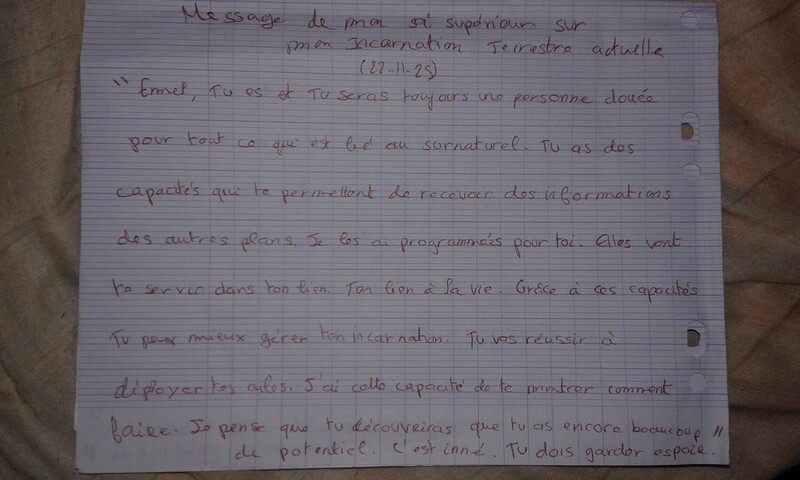 Message de mon soi supérieur sur
mon Incarnation Terrestre actuelle
(22-11-25)
" Ennel, Tu es et Tu seras toujours une personne douée
pour tout ce qui est lié au surnaturel. Tu as des
capacités que te permettent de recevoir des informations
des autres plans. Je les ai programmées pour toi. Elles vont
te servir dans ton lien. Ton lien à la vie. Grâce à ces capacités
Tu peux mieux gérer ton incarnation. Tu vas réussir à
déployer tes ailes. J'ai cette capacité de te montrer comment
faire. Je pense que tu découvriras que tu as encore beaucoup
de potentiel. C'est inné. Tu dois garder espoir. "